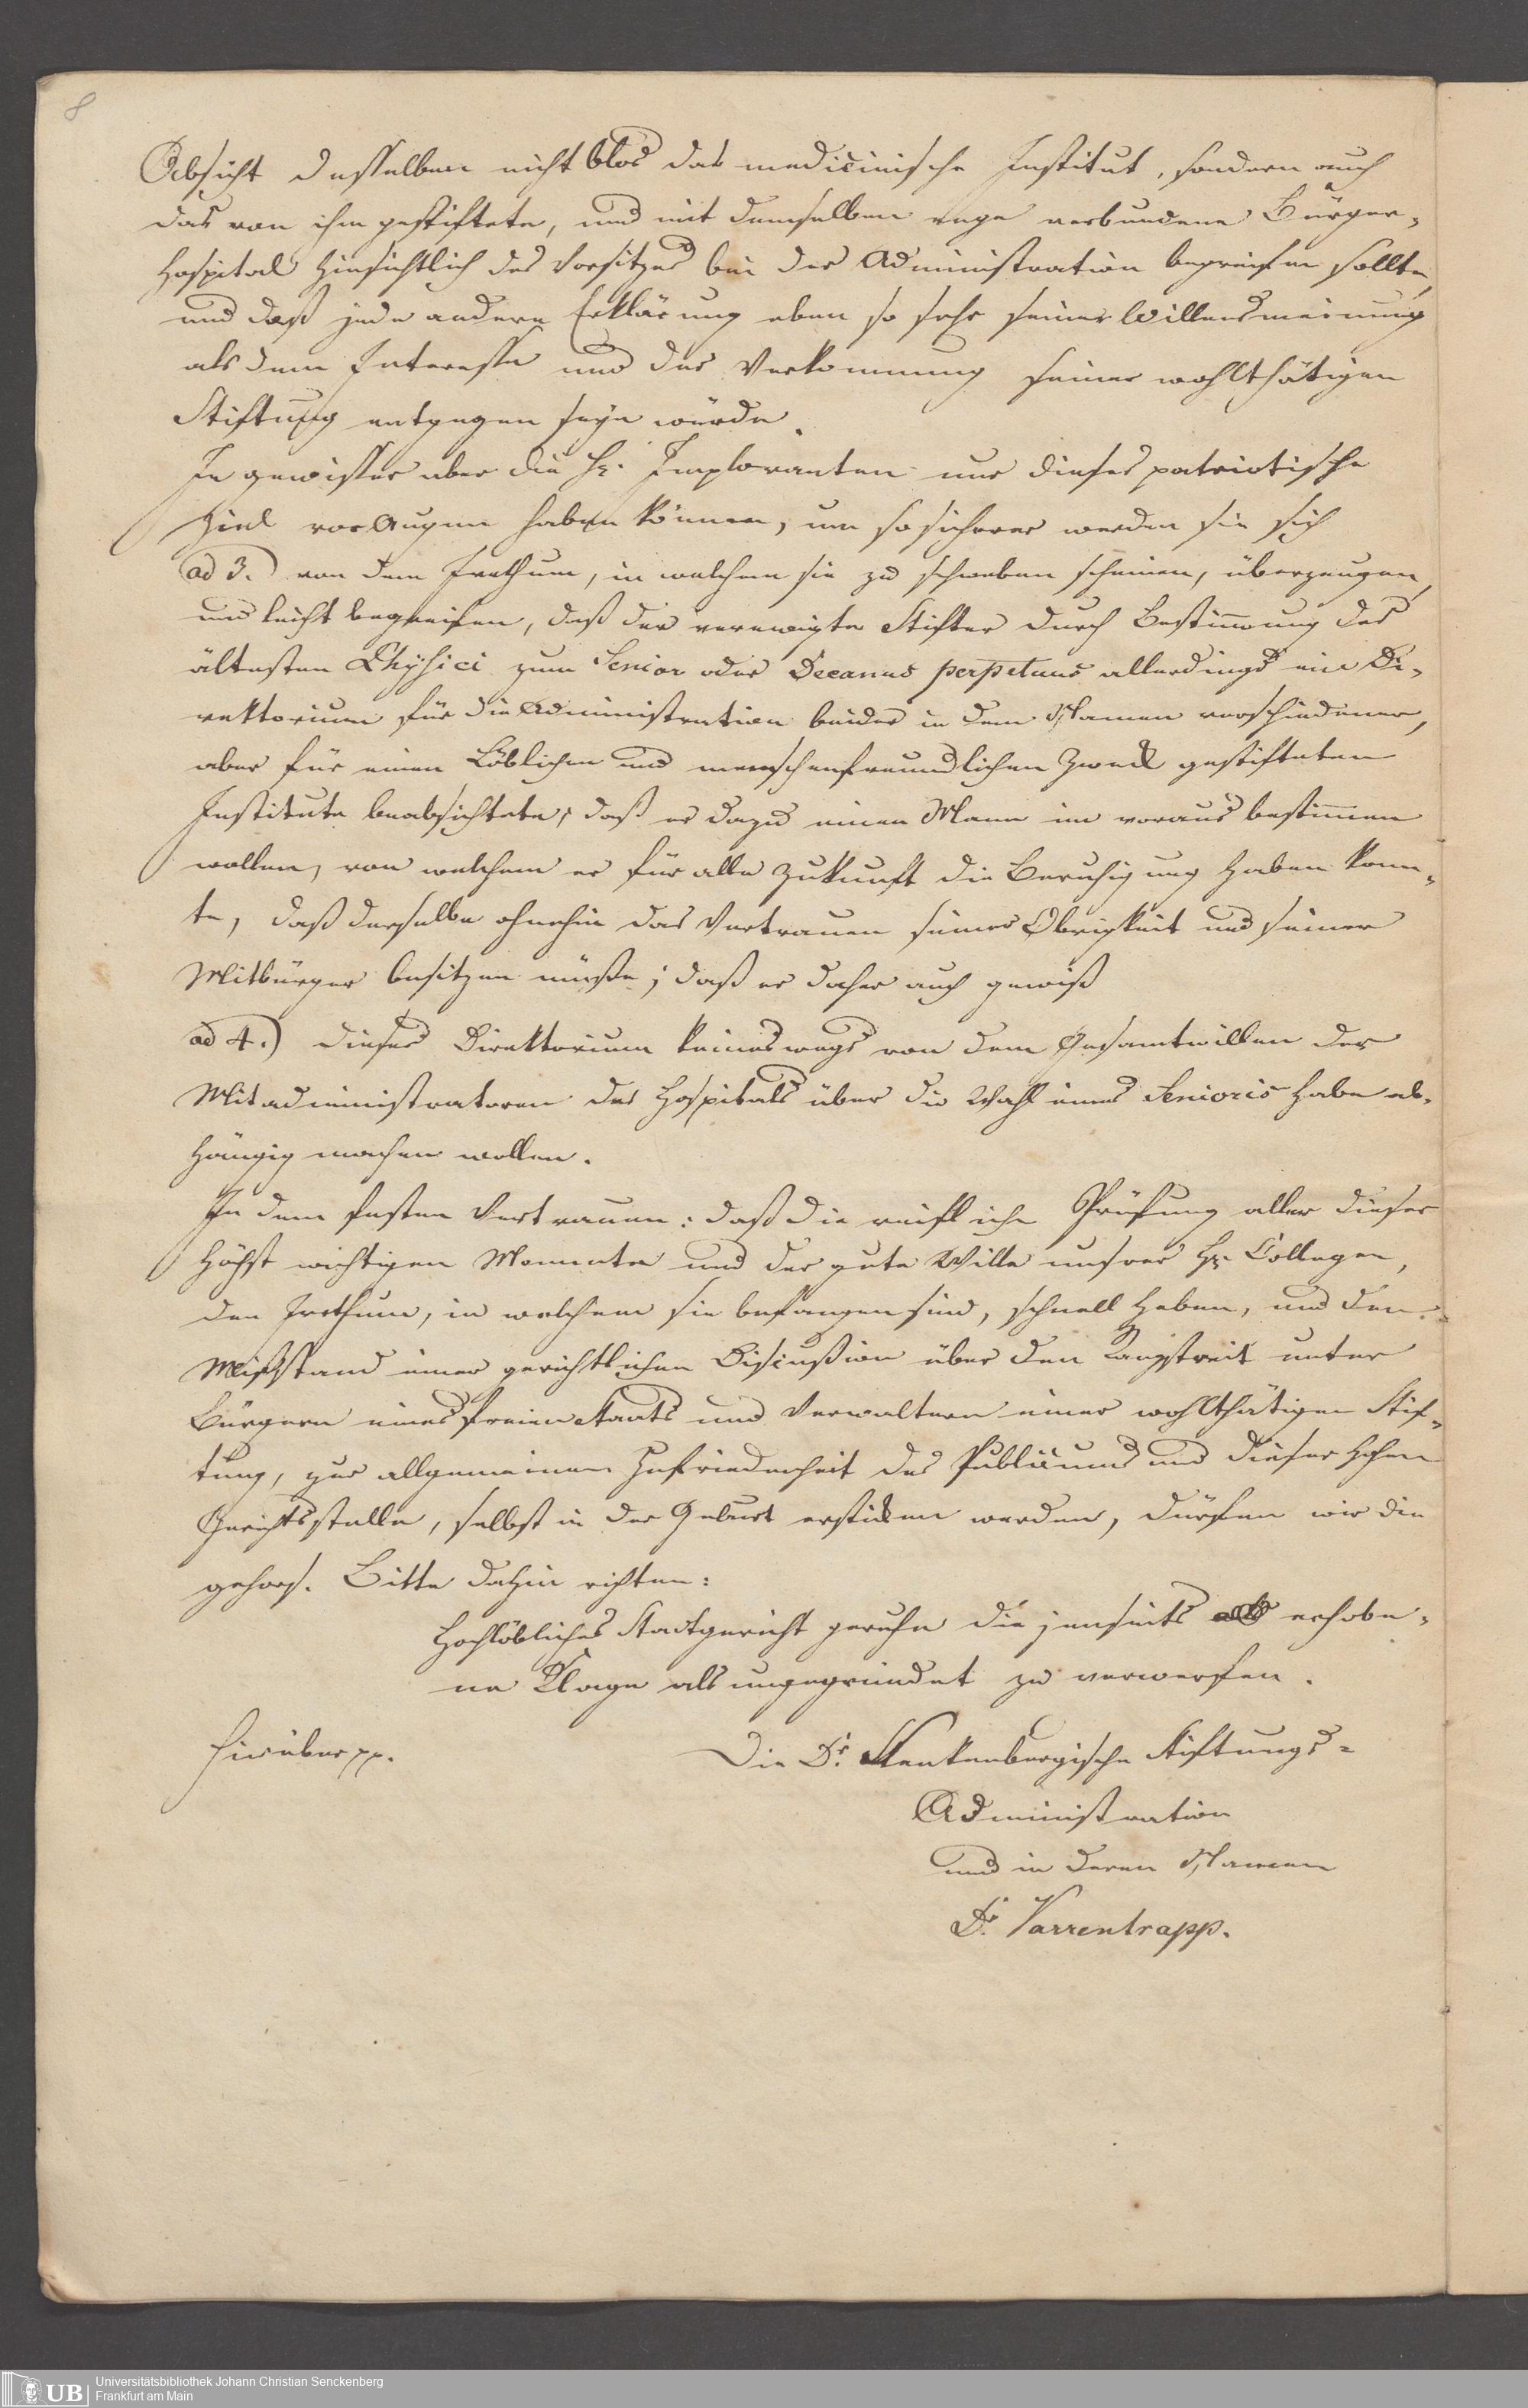 8
Absicht desselben nicht blos das medicinische Institut, sondern auch
das von ihm gestiftete, und mit demselben enge verbundene Bürger-
hospital hinsichtlich des Vorsitzes bei der Administration begreifen sollte,
und daß jede andere Erklärung eben so sehr seiner Willensmeinung
als dem Interesse und der seiner wohlthätigen
Stiftung entgegen seyn würde.
Je gewisser aber die H. Imploranten nur dieses patriotische
Ziel vor Augen haben können, um so sicherer werden sie sich
ad 3. von dem Irrthum, in welchem sie zu schweben scheinen, überzeugen,
und leicht begreifen, daß der verewigte Stifter durch Bestimmung des
ältesten Physici zum Senior oder Decanus perpetuus allerdings ein Di-
rektorium für die Administration beider in dem Namen verschiedener,
aber für einen Löblichen und menschenfreundlichen Zweck gestifteten
Institute beabsichtete; daß er dazu einen Mann im voraus bestimmen
wollen, von welchem er für alle Zukunft die Beruhigung haben konn-
te, daß derselbe ohnehin das Vertrauen seiner Obrigkeit und seiner
Mitbürger besitzen müsse; daß er daher auch gewiß
ad 4.) dieses Direktorium keineswegs von dem Gesamtwillen der
Mitadministratoren des Hospitals über die Wahl eines Senioris habe ab-
hängig machen wollen.
In dem festen Vertrauen: daß die reifliche Prüfung aller dieser
höchst wichtigen Momente und der gute Wille unsrer H. Collegen,
den Irrthum, in welchem sie befangen sind, schnell heben, und den
Mißstand einer gerichtlichen Discußion über den Rangstreit unter
Bürgern eines freien Staats und Verwaltern einer wohlthätigen Stif-
tung, zur allgemeinen Zufriedenheit des Publicums und dieser hohen
Gerichtsstelle, selbst in der Geburt ersticken werden, dürfen wir die
gehors. Bitte dahin richten:
Hochlöbliches Stadtgericht geruhe die jenseits erhobe-
ne Klage als ungegründet zu verwerfen.
Hierüber pp.
Die Dr. Senkenbergische Stiftungs-
Administration
und in deren Namen
Dr. Varrentrapp.
UB
Universitätsbibliothek Johann Christian Senckenberg
Frankfurt am Main